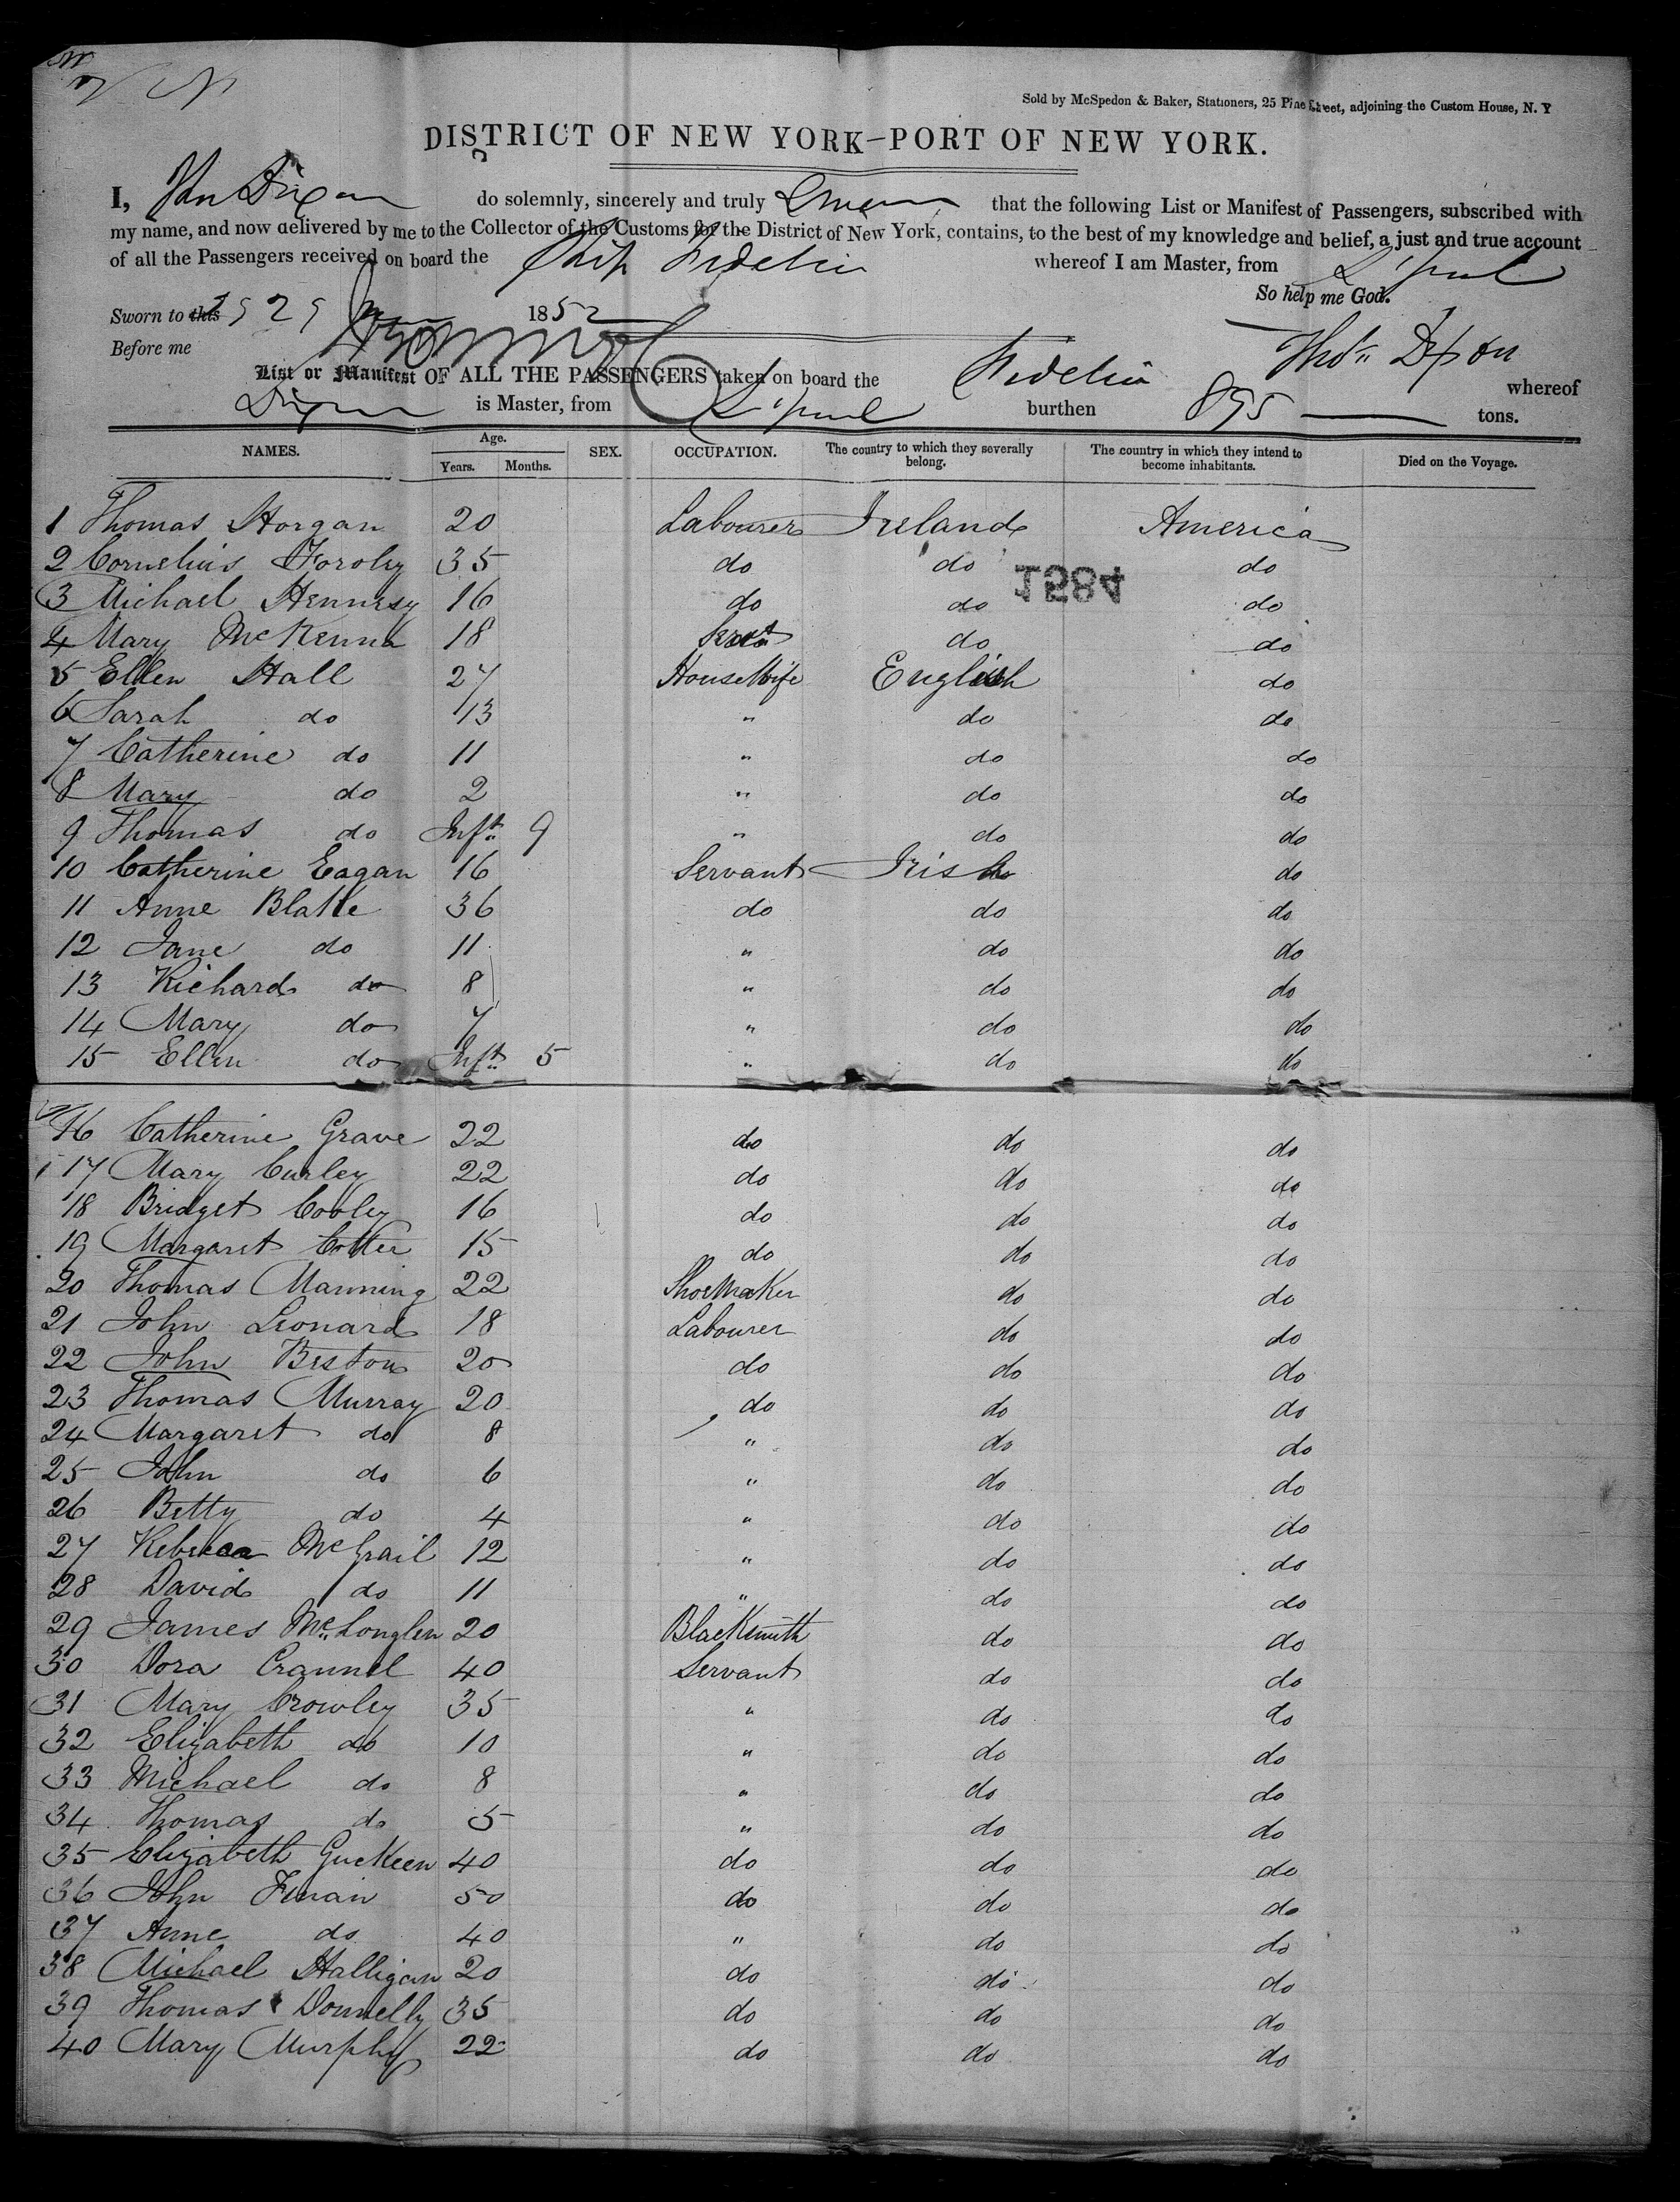 Sold by McSpedon & Baker, Stationers, 25 Pine Street, adjoining the Custom House, N. Y
DISTRICT OF NEW YORK—PORT OF NEW YORK.
I, Dixon do solemnly, sincerely and truly Swear that the following List or Manifest of Passengers, subscribed with
my name, and now delivered by me to the Collector of the Customs for the District of New York, contains, to the best of my knowledge and belief, a just and true account
of all the Passengers received on board the Ship Fidelia whereof I am Master, from L'pool
So help me God.
Sworn to this 29 1852
Before me
Thos Dixon
List or Manifest OF ALL THE PASSENGERS taken on board the Fidelia whereof
Dixon is Master, from L'pool burthen 895 tons.
NAMES. Age. Years. Months. SEX. OCCUPATION. The country to which they severally belong. The country in which they intend to become inhabitants. Died on the Voyage.
1 Thomas Horgan 20 Labourer Ireland America
2 Cornelius Foroley 35 do do do
1584
3 Michael Hennesy 16 do do do
4 Mary McKenna 18 Servt do do
5 Ellen Hall 27 HouseWife English do
6 Sarah do 13 " do do
7 Catherine do 11 " do do
8 Mary do 2 " do do
9 Thomas do Inft 9 " do do
10 Catherine Eagan 16 Servant Irish do
11 Anne Blake 36 do do do
12 Jane do 11 " do do
13 Richard do 8 " do do
14 Mary do 7 " do do
15 Ellen do Inft 5 " do do
16 Catherine Grave 22 do do do
17 Mary Curley 22 do do do
18 Bridget Cooley 16 do do do
19 Margaret Cotter 15 do do do
20 Thomas Manning 22 ShoeMaker do do
21 John Leonard 18 Labourer do do
22 John Beston 20 do do do
23 Thomas Murray 20 do do do
24 Margaret do 8 " do do
25 John do 6 " do do
26 Betty do 4 " do do
27 Rebecca McGrail 12 " do do
28 David do 11 " do do
29 James Mc.Longlen 20 BlackSmith do do
30 Dora Crannel 40 Servant do do
31 Mary Crowley 35 " do do
32 Elizabeth do 10 " do do
33 Michael do 8 " do do
34 Thomas do 5 " do do
35 Elizabeth GucKeen 40 do do do
36 John Finan 50 do do do
37 Anne do 40 " do do
38 Michael Halligan 20 do do do
39 Thomas Donnelly 35 do do do
40 Mary Murphy 22 do do do